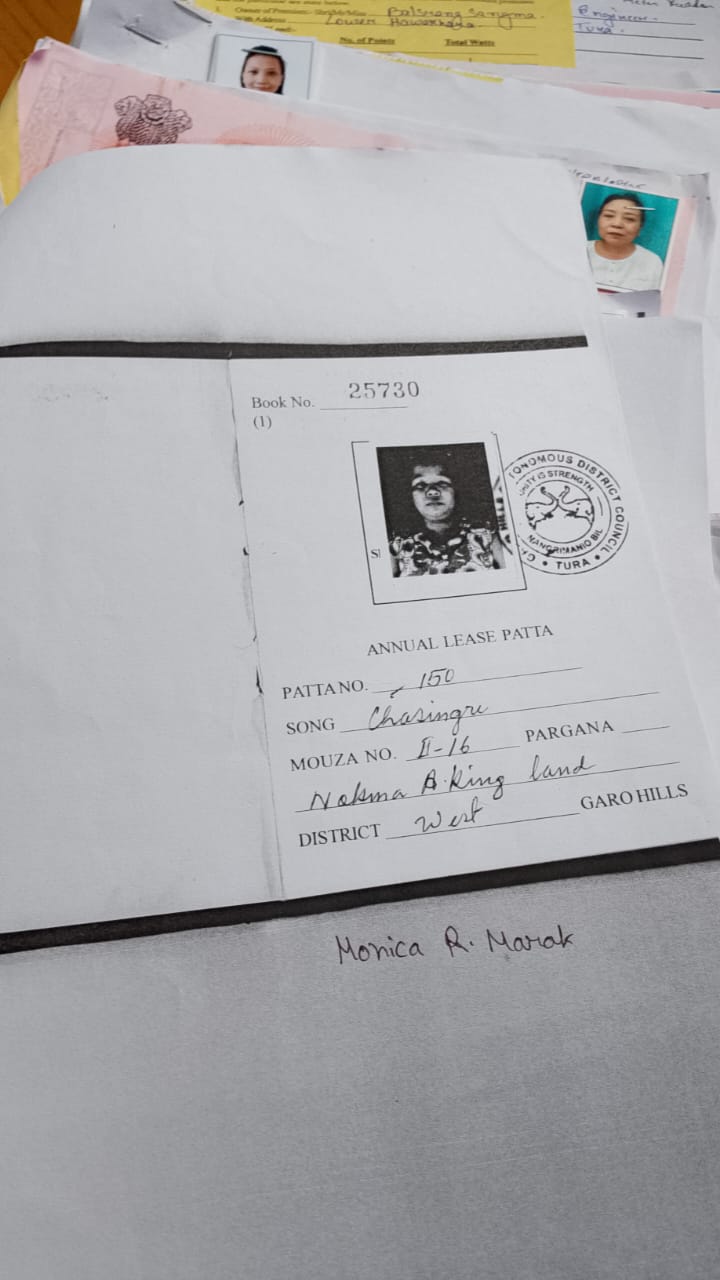 1. Owner of Premises:- Shri/Mr/Miss Balsrang Sangma.
With Address Lower Hawakhana
No. of Points Total Watts
Engineer.
Tura.
Book No. 25730
(1)
AUTONOMOUS DISTRICT COUNCIL
UNITY IS STRENGTH
TURA
ANNUAL LEASE PATTA
PATTA NO. 150
SONG Chasingre
MOUZA NO. II-16 PARGANA
Nokma A.King land
DISTRICT West GARO HILLS
Monica R. Marak